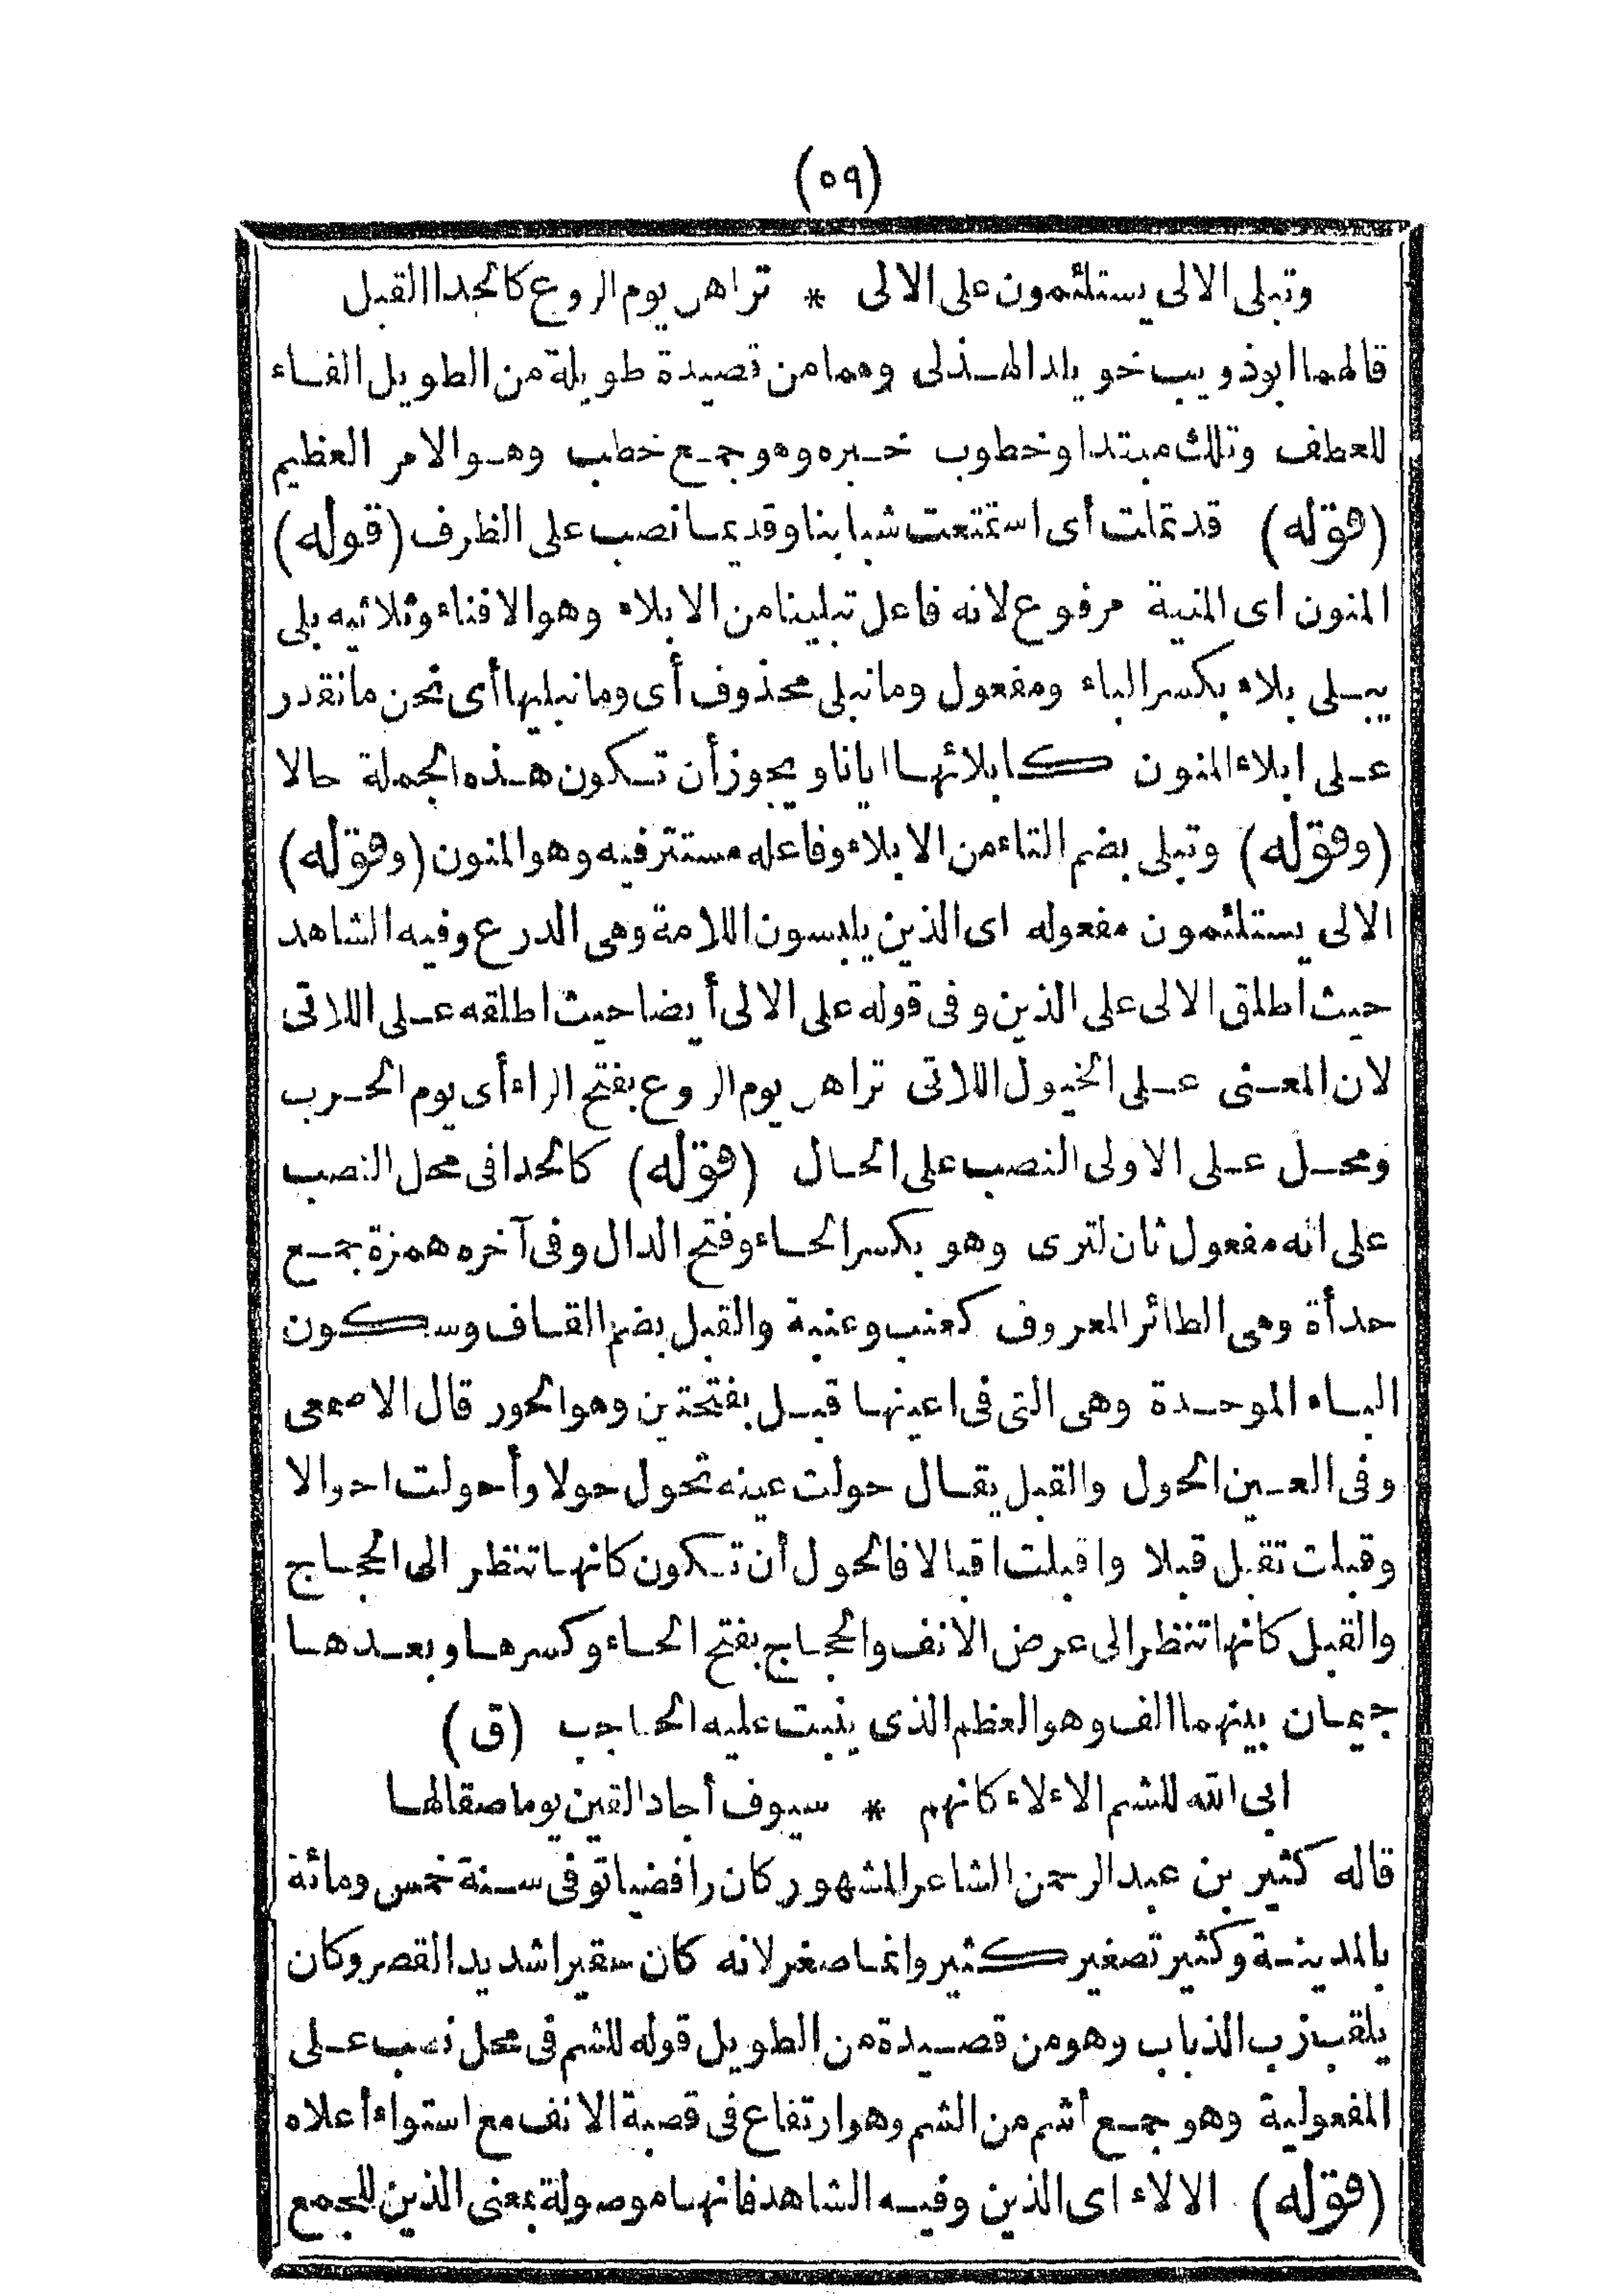 (٥٩)
وتبلى الالى يستلئمون على الالى * تراهن يوم الروع كالحدا القبل
قالهما ابوذويب خويلد الهذلى وهما من قصيدة طويلة من الطويل الفاء
للعطف وتلك مبتدا وخطوب خبره وهو جمع خطب وهو الامر العظيم
(قوله) قد تملت أى استمتعت شبابنا وقديما نصب على الظرف (قوله)
المنون اى المنية مرفوع لانه فاعل تبلينا من الابلاء وهو الافناء وثلاثيه بلى
يبلى بلاء بكسر الباء ومفعول وما نبلى محذوف أى وما نبليها أى نحن ما نقدر
على ابلاء المنون كابلائها ايانا ويجوز أن تكون هذه الجملة حالا
(وقوله) وتبلى بضم التاء من الابلاء وفاعله مستتر فيه وهو المنون (وقوله)
الالى يستلئمون مفعوله اى الذين يلبسون اللامة وهى الدرع وفيه الشاهد
حيث اطلق الالى على الذين وفى قوله على الالى أيضا حيث اطلقه على اللاتى
لان المعنى على الخيول اللاتى تراهن يوم الروع بفتح الراء أى يوم الحرب
ومحل على الاولى النصب على الحال (قوله) كالحدا فى محل النصب
على انه مفعول ثان لترى وهو بكسر الحاء وفتح الدال وفى آخره همزة جمع
حدأة وهى الطائر المعروف كعنب وعنبة والقبل بضم القاف وسكون
الباء الموحدة وهى التى فى اعينها قبل بفتحتين وهو الحور قال الاصمعى
وفى العين الحول والقبل يقال حولت عينه تحول حولا وأحولت احوالا
وقبلت تقبل قبلا واقبلت اقبالا فالحول أن تكون كانها تنظر الى الحجاج
والقبل كانها تنظر الى عرض الانف والحجاج بفتح الحاء وكسرها وبعدها
جيمان بينهما الف وهو العظم الذى ينبت عليه الحاجب (ق)
ابى الله للشم الاءلاء كانهم * سيوف أجاد القين يوما صقالها
قاله كثير بن عبد الرحمن الشاعر المشهور كان رافضيا توفى سنة خمس ومائة
بالمدينة وكثير تصغير كثير وانما صغر لانه كان حقيرا شديد القصر وكان
يلقب زب الذباب وهو من قصيدة من الطويل قوله للشم فى محل نصب على
المفعولية وهو جمع أشم من الشم وهو ارتفاع فى قصبة الانف مع استواء أعلاه
(قوله) الالاء اى الذين وفيه الشاهد فانها موصولة بمعنى الذين للجمع